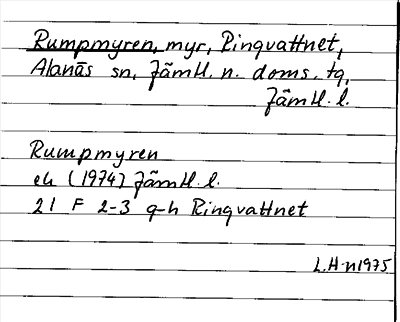 Rumpmyren, myr, Ringvattnet,
Alanäs sn, Jämtl. n. doms. tg,
Jämtl. l.
Rumpmyren
ek (1974) Jämtl. l.
21 F 2-3 g-h Ringvattnet
L.H-n 1975